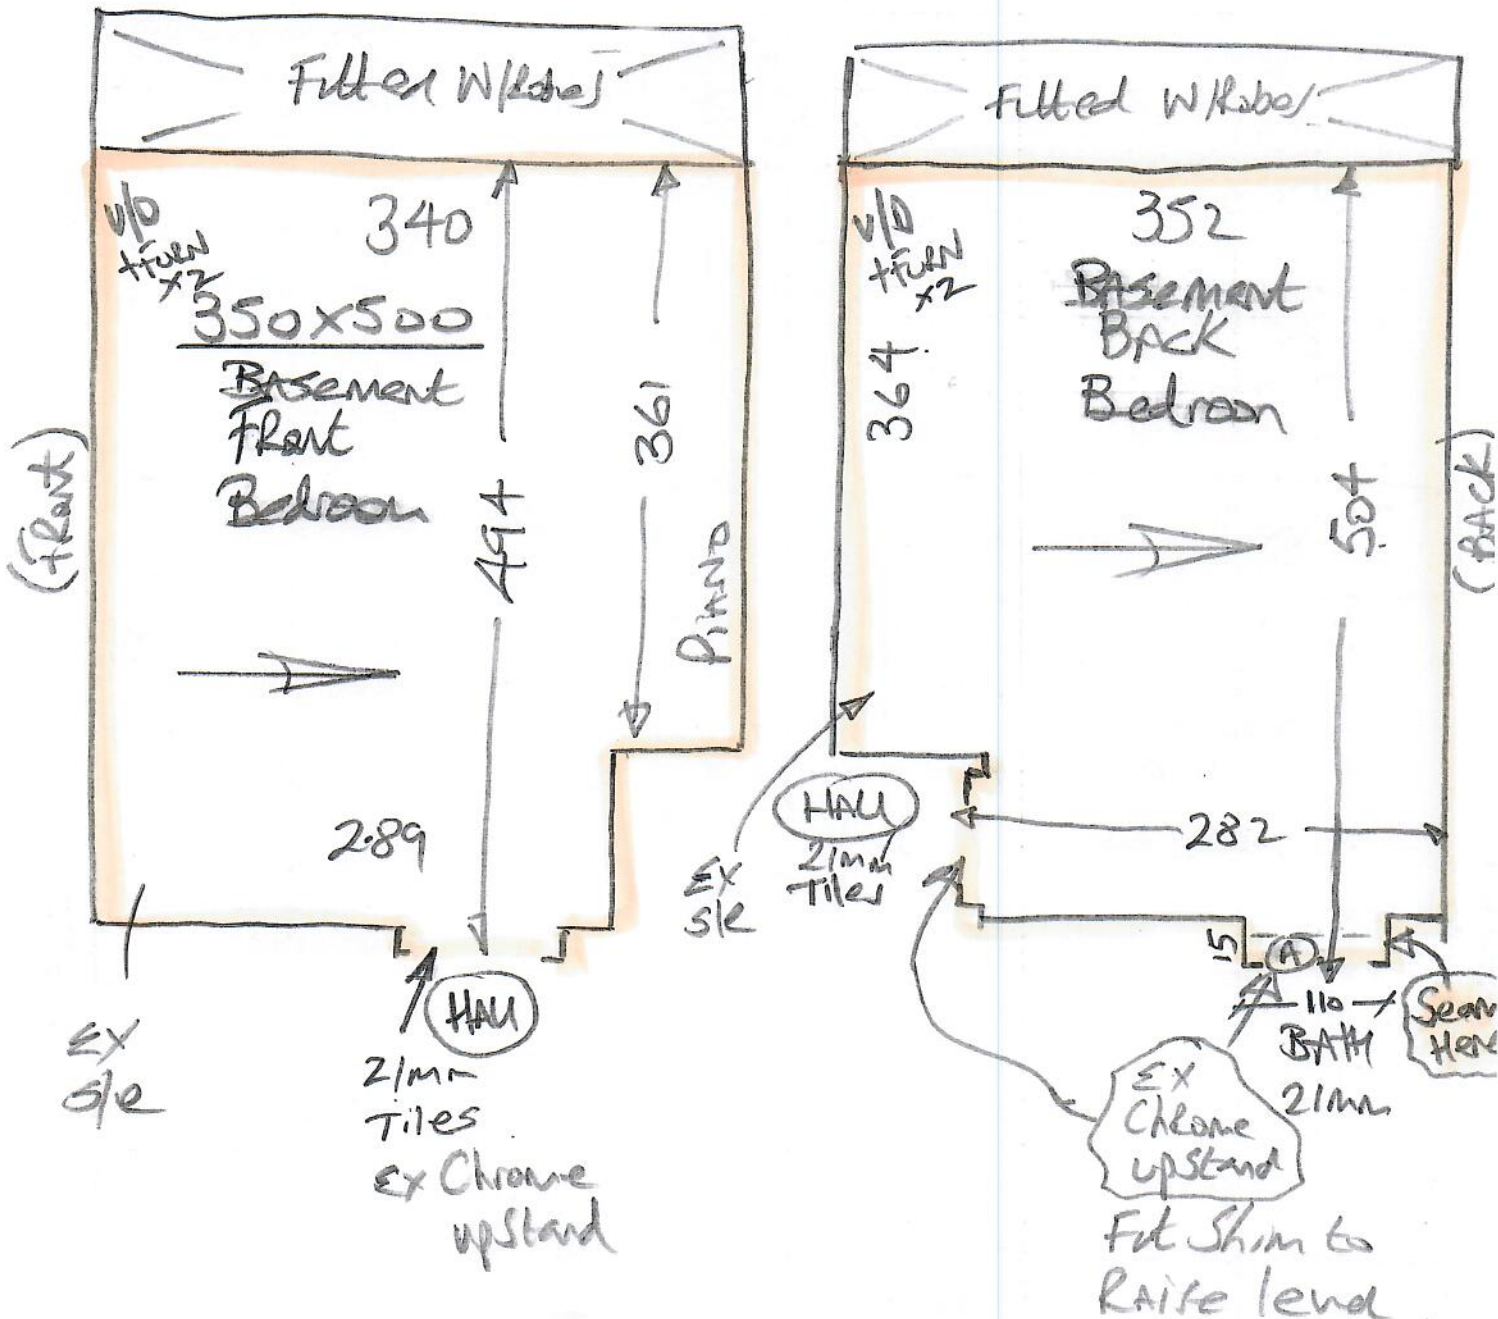 Fitted W/Robes
340
U/D
+FURN
x2
350x500
Basement
Front
Bedroom
(Front)
494
361
PIANO
289
HALL
21mm
Tiles
EX Chrome
upstand
EX
S/R
Fitted W/Robes
352
U/D
+FURN
x2
Basement
BACK
Bedroom
364
504
(BACK)
HALL
21mm
Tiles
282
EX
S/R
15
A
110
BATH
21mm
Seam
Here
EX
Chrome
upstand
Fit Shim to
RAise level